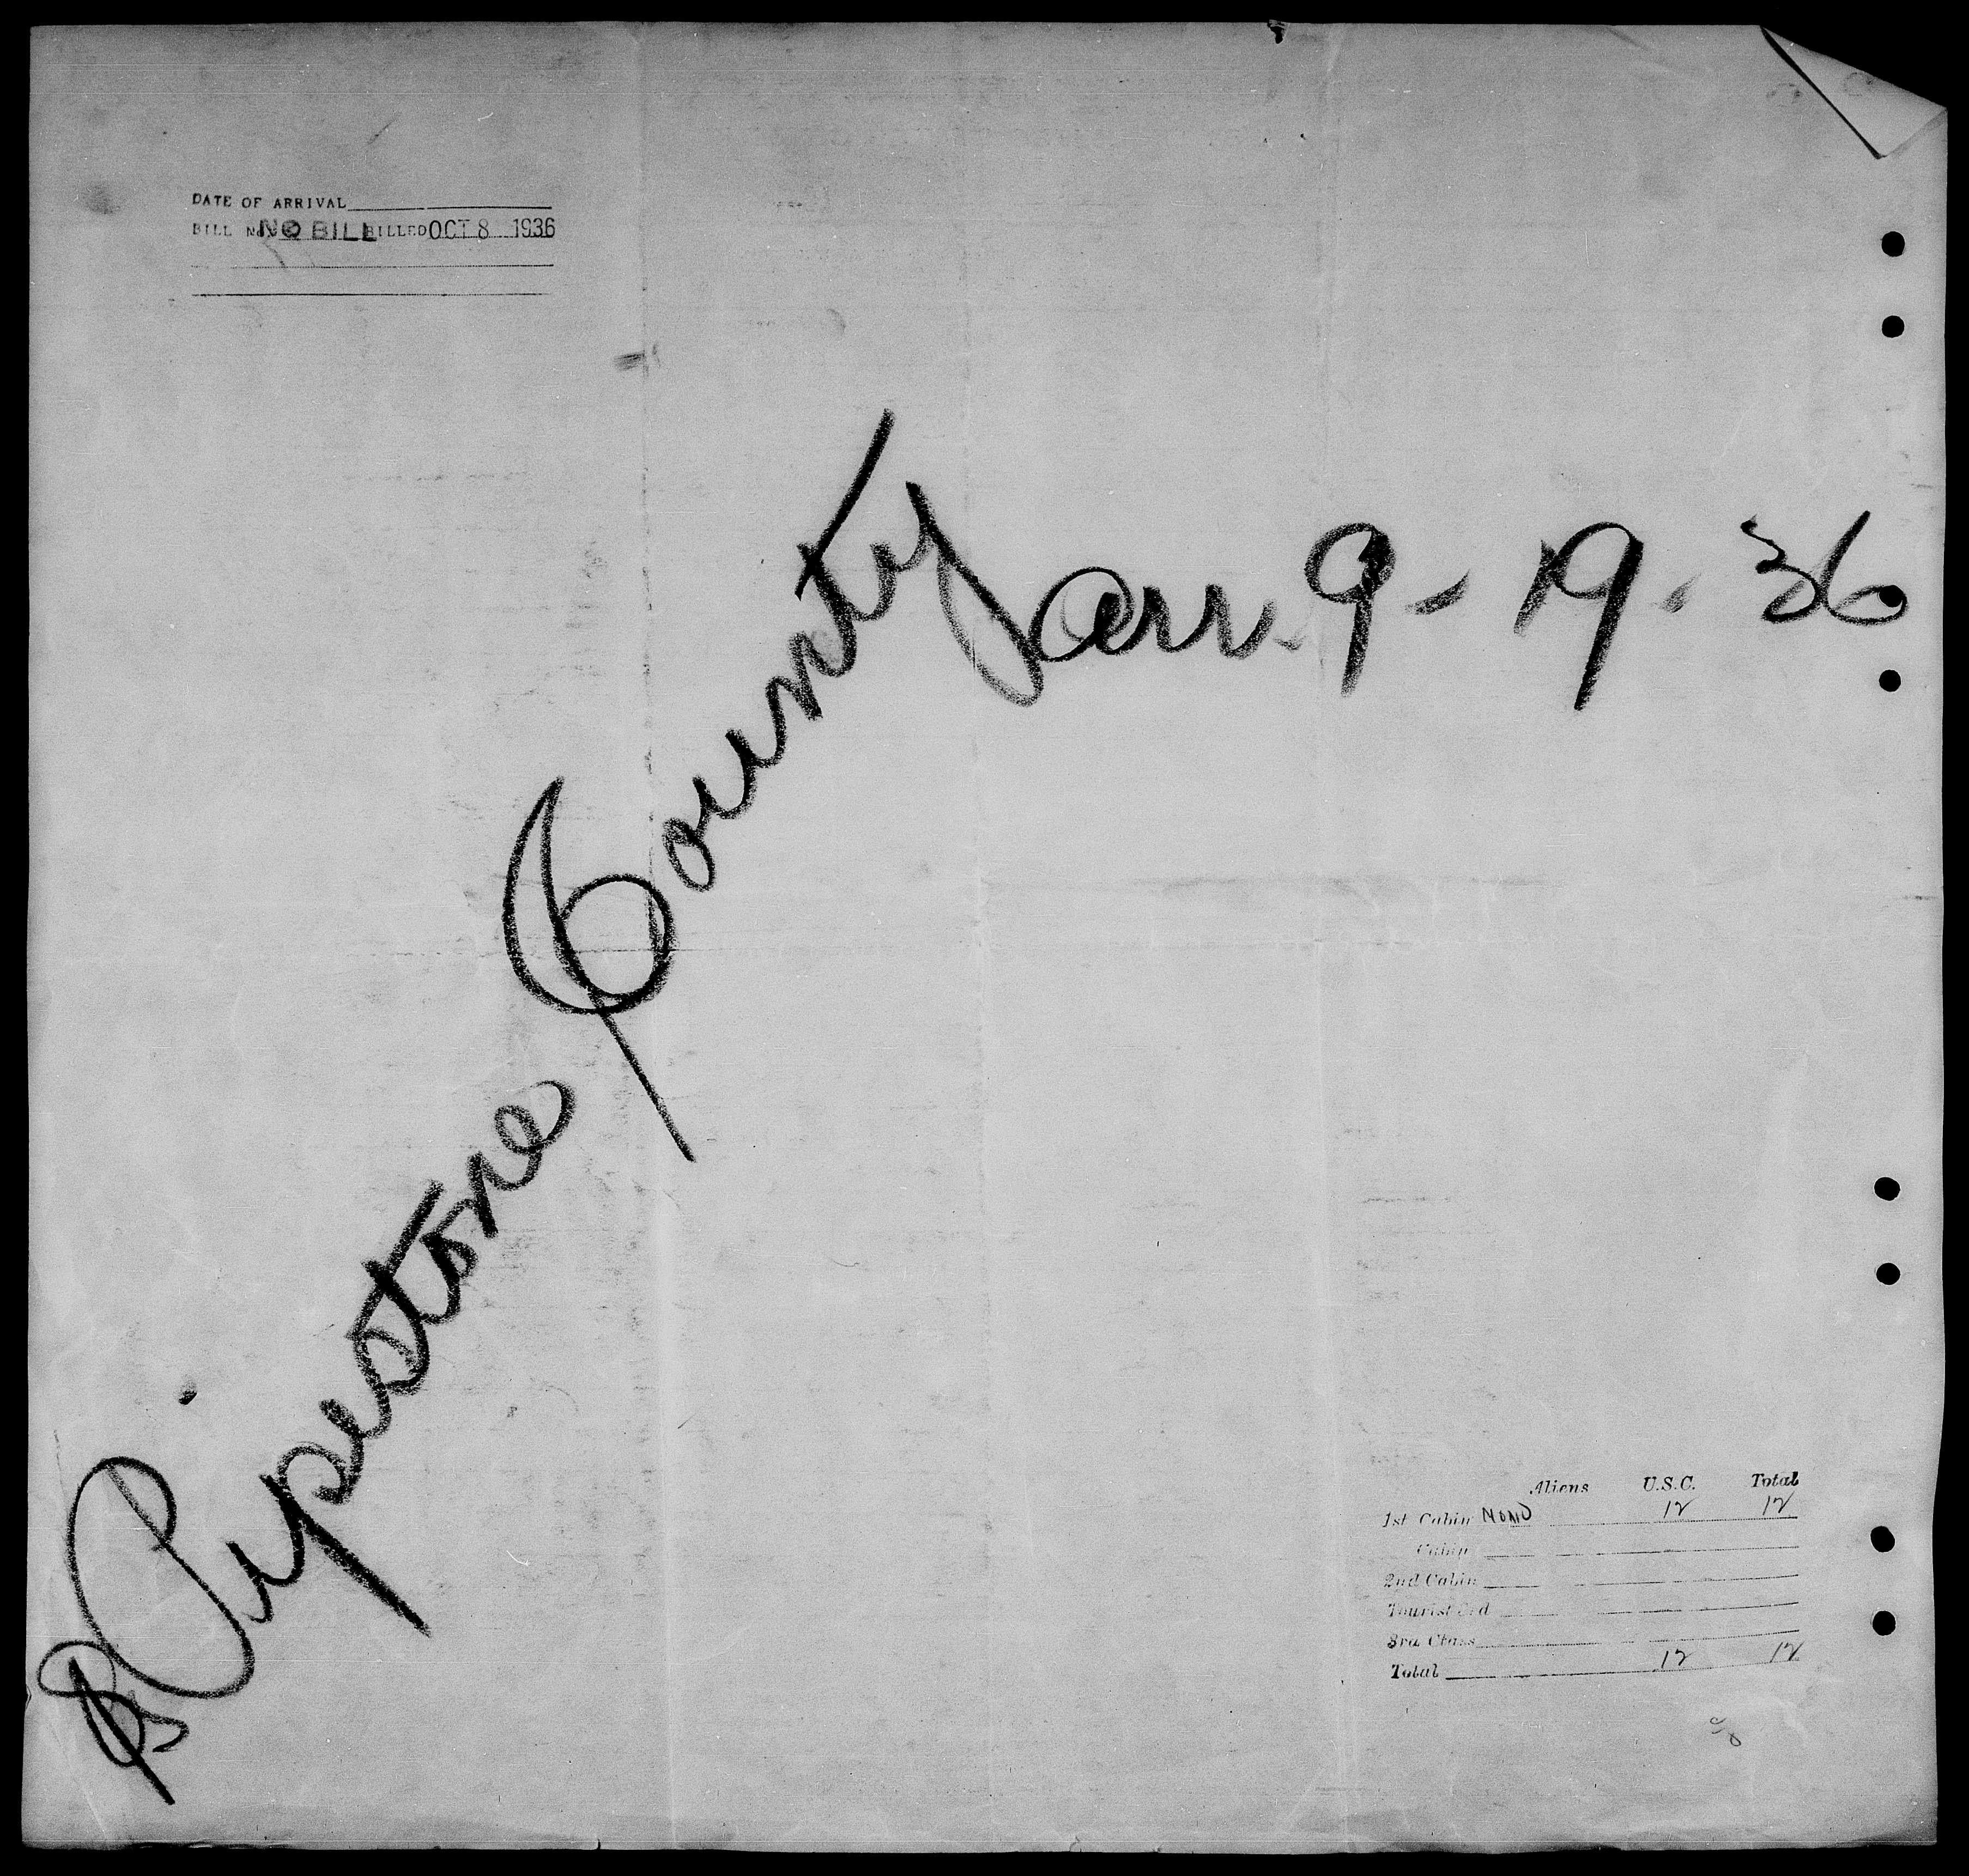 DATE OF ARRIVAL
BILL No. NO BILL BILLED OCT 8 1936
SS Pipestone County arr. 9-19-36
Aliens U.S.C. Total
1st Cabin None 12 12
Cabin
2nd Cabin
Tourist 3rd
3rd Class
Total 12 12